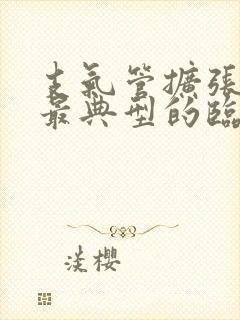 支氣管擴張
最典型的臨
淡櫻